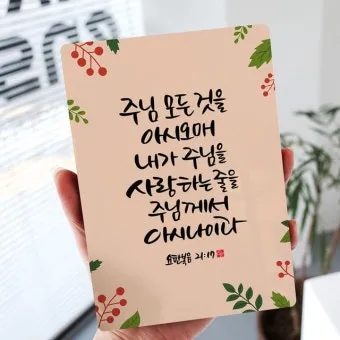 주님 모든 것을
아시오매
내가 주님을
사랑하는 줄을
주님께서
아시나이다
요한복음 21:17